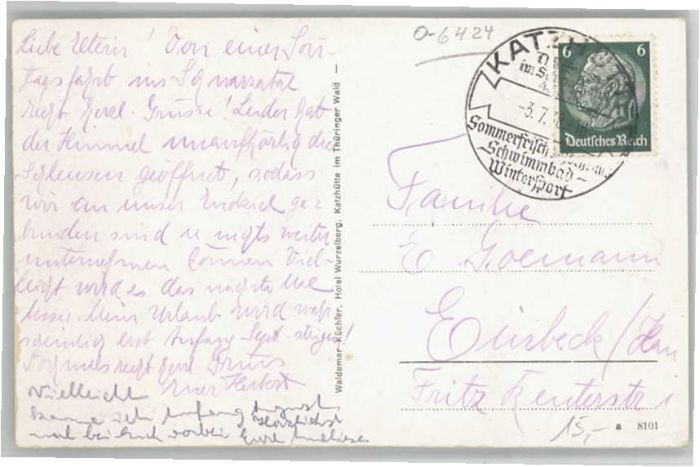 Liebe Eltern! Von einer Sonn-
tagsfahrt ins Schwarzatal
recht herzl. Grüsse! Leider hat
der Himmel unaufhörlich die
Schleusen geöffnet, sodass
wir an unser Endziel ge-
bunden sind u nichts weiter
unternehmen können Viel-
leicht wird es das nächste Mal
besser. Mein Urlaub wird wahr-
scheinlich erst Anfang Sept. steigen!
Nochmals recht herzl Gruss
Euer Herbert
Vielleicht
komme ich Anfang August
mal bei Euch vorbei Herzlichst Eure
Waldemar-Küchler, Hotel Wurzelberg, Katzhütte im Thüringer Wald —
0-6424
KATZH
im S
-3.7.
Sommerfrisch
Schwimmbad -
Wintersport
6 6
Deutsches Reich
Familie
E
Einbeck/Han
Fritz Reuterstr 1
15,-
a 8101